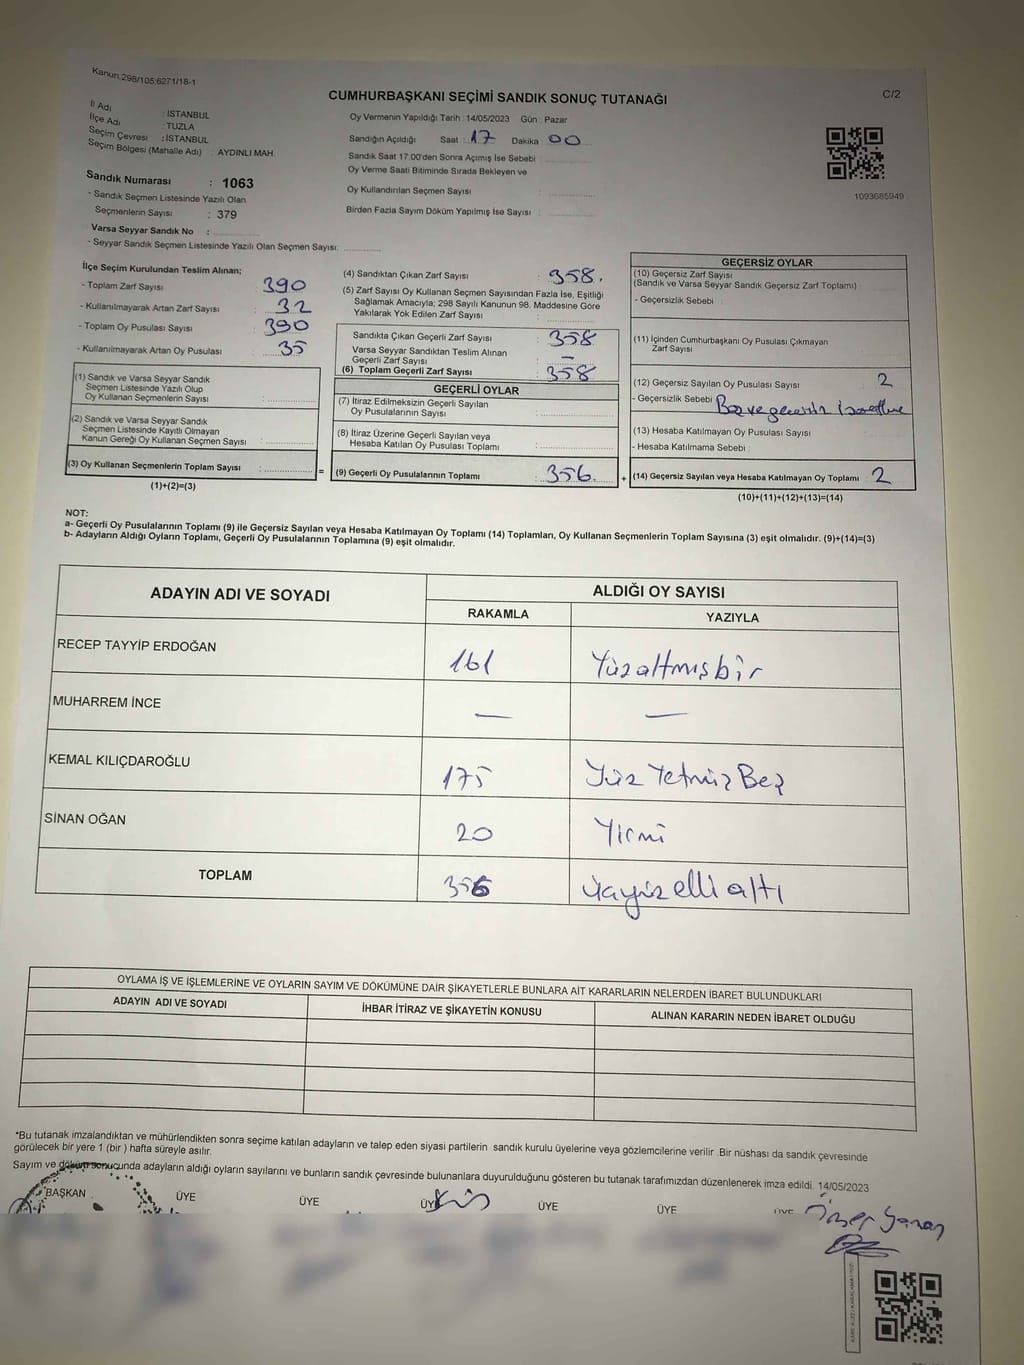 Kanun:298/105:6271/18-1
C/2
CUMHURBAŞKANI SEÇİMİ SANDIK SONUÇ TUTANAĞI
İl Adı : İSTANBUL
İlçe Adı : TUZLA
Seçim Çevresi : İSTANBUL
Seçim Bölgesi (Mahalle Adı) : AYDINLI MAH.
Oy Vermenin Yapıldığı Tarih : 14/05/2023 Gün : Pazar
Sandığın Açıldığı Saat : 17 Dakika 00
Sandık Saat 17.00'den Sonra Açımış İse Sebebi
Oy Verme Saati Bitiminde Sırada Bekleyen ve
Oy Kullandırılan Seçmen Sayısı :
Birden Fazla Sayım Döküm Yapılmış İse Sayısı :
1093685949
Sandık Numarası : 1063
- Sandık Seçmen Listesinde Yazılı Olan
Seçmenlerin Sayısı : 379
Varsa Seyyar Sandık No :
- Seyyar Sandık Seçmen Listesinde Yazılı Olan Seçmen Sayısı:
İlçe Seçim Kurulundan Teslim Alınan;
- Toplam Zarf Sayısı 390
- Kullanılmayarak Artan Zarf Sayısı : 32
- Toplam Oy Pusulası Sayısı : 390
- Kullanılmayarak Artan Oy Pusulası : 35
(1) Sandık ve Varsa Seyyar Sandık
Seçmen Listesinde Yazılı Olup
Oy Kullanan Seçmenlerin Sayısı :
(2) Sandık ve Varsa Seyyar Sandık
Seçmen Listesinde Kayıtlı Olmayan
Kanun Gereği Oy Kullanan Seçmen Sayısı :
(3) Oy Kullanan Seçmenlerin Toplam Sayısı :
(1)+(2)=(3)
(4) Sandıktan Çıkan Zarf Sayısı : 358.
(5) Zarf Sayısı Oy Kullanan Seçmen Sayısından Fazla İse, Eşitliği
Sağlamak Amacıyla; 298 Sayılı Kanunun 98. Maddesine Göre
Yakılarak Yok Edilen Zarf Sayısı :
Sandıkta Çıkan Geçerli Zarf Sayısı : 358
Varsa Seyyar Sandıktan Teslim Alınan
Geçerli Zarf Sayısı : –
(6) Toplam Geçerli Zarf Sayısı : 358
GEÇERLİ OYLAR
(7) İtiraz Edilmeksizin Geçerli Sayılan
Oy Pusulalarının Sayısı :
(8) İtiraz Üzerine Geçerli Sayılan veya
Hesaba Katılan Oy Pusulası Toplamı :
= (9) Geçerli Oy Pusulalarının Toplamı : 356.
GEÇERSİZ OYLAR
(10) Geçersiz Zarf Sayısı
(Sandık ve Varsa Seyyar Sandık Geçersiz Zarf Toplamı) :
- Geçersizlik Sebebi :
(11) İçinden Cumhurbaşkanı Oy Pusulası Çıkmayan
Zarf Sayısı :
(12) Geçersiz Sayılan Oy Pusulası Sayısı : 2
- Geçersizlik Sebebi
(13) Hesaba Katılmayan Oy Pusulası Sayısı :
- Hesaba Katılmama Sebebi :
+ (14) Geçersiz Sayılan veya Hesaba Katılmayan Oy Toplamı : 2
(10)+(11)+(12)+(13)=(14)
NOT:
a- Geçerli Oy Pusulalarının Toplamı (9) ile Geçersiz Sayılan veya Hesaba Katılmayan Oy Toplamı (14) Toplamları, Oy Kullanan Seçmenlerin Toplam Sayısına (3) eşit olmalıdır. (9)+(14)=(3)
b- Adayların Aldığı Oyların Toplamı, Geçerli Oy Pusulalarının Toplamına (9) eşit olmalıdır.
ADAYIN ADI VE SOYADI
ALDIĞI OY SAYISI
RAKAMLA YAZIYLA
RECEP TAYYİP ERDOĞAN 161 Yüzaltmışbir
MUHARREM İNCE — —
KEMAL KILIÇDAROĞLU 175 Yüz Yetmiş Beş
SİNAN OĞAN 20 Yirmi
TOPLAM 356 üçyüz elli altı
OYLAMA İŞ VE İŞLEMLERİNE VE OYLARIN SAYIM VE DÖKÜMÜNE DAİR ŞİKAYETLERLE BUNLARA AİT KARARLARIN NELERDEN İBARET BULUNDUKLARI
ADAYIN ADI VE SOYADI İHBAR İTİRAZ VE ŞİKAYETİN KONUSU ALINAN KARARIN NEDEN İBARET OLDUĞU
*Bu tutanak imzalandıktan ve mühürlendikten sonra seçime katılan adayların ve talep eden siyasi partilerin sandık kurulu üyelerine veya gözlemcilerine verilir .Bir nüshası da sandık çevresinde
görülecek bir yere 1 (bir ) hafta süreyle asılır.
Sayım ve döküm sonucunda adayların aldığı oyların sayılarını ve bunların sandık çevresinde bulunanlara duyurulduğunu gösteren bu tutanak tarafımızdan düzenlenerek imza edildi. 14/05/2023
BAŞKAN ÜYE ÜYE ÜYE ÜYE ÜYE ÜYE